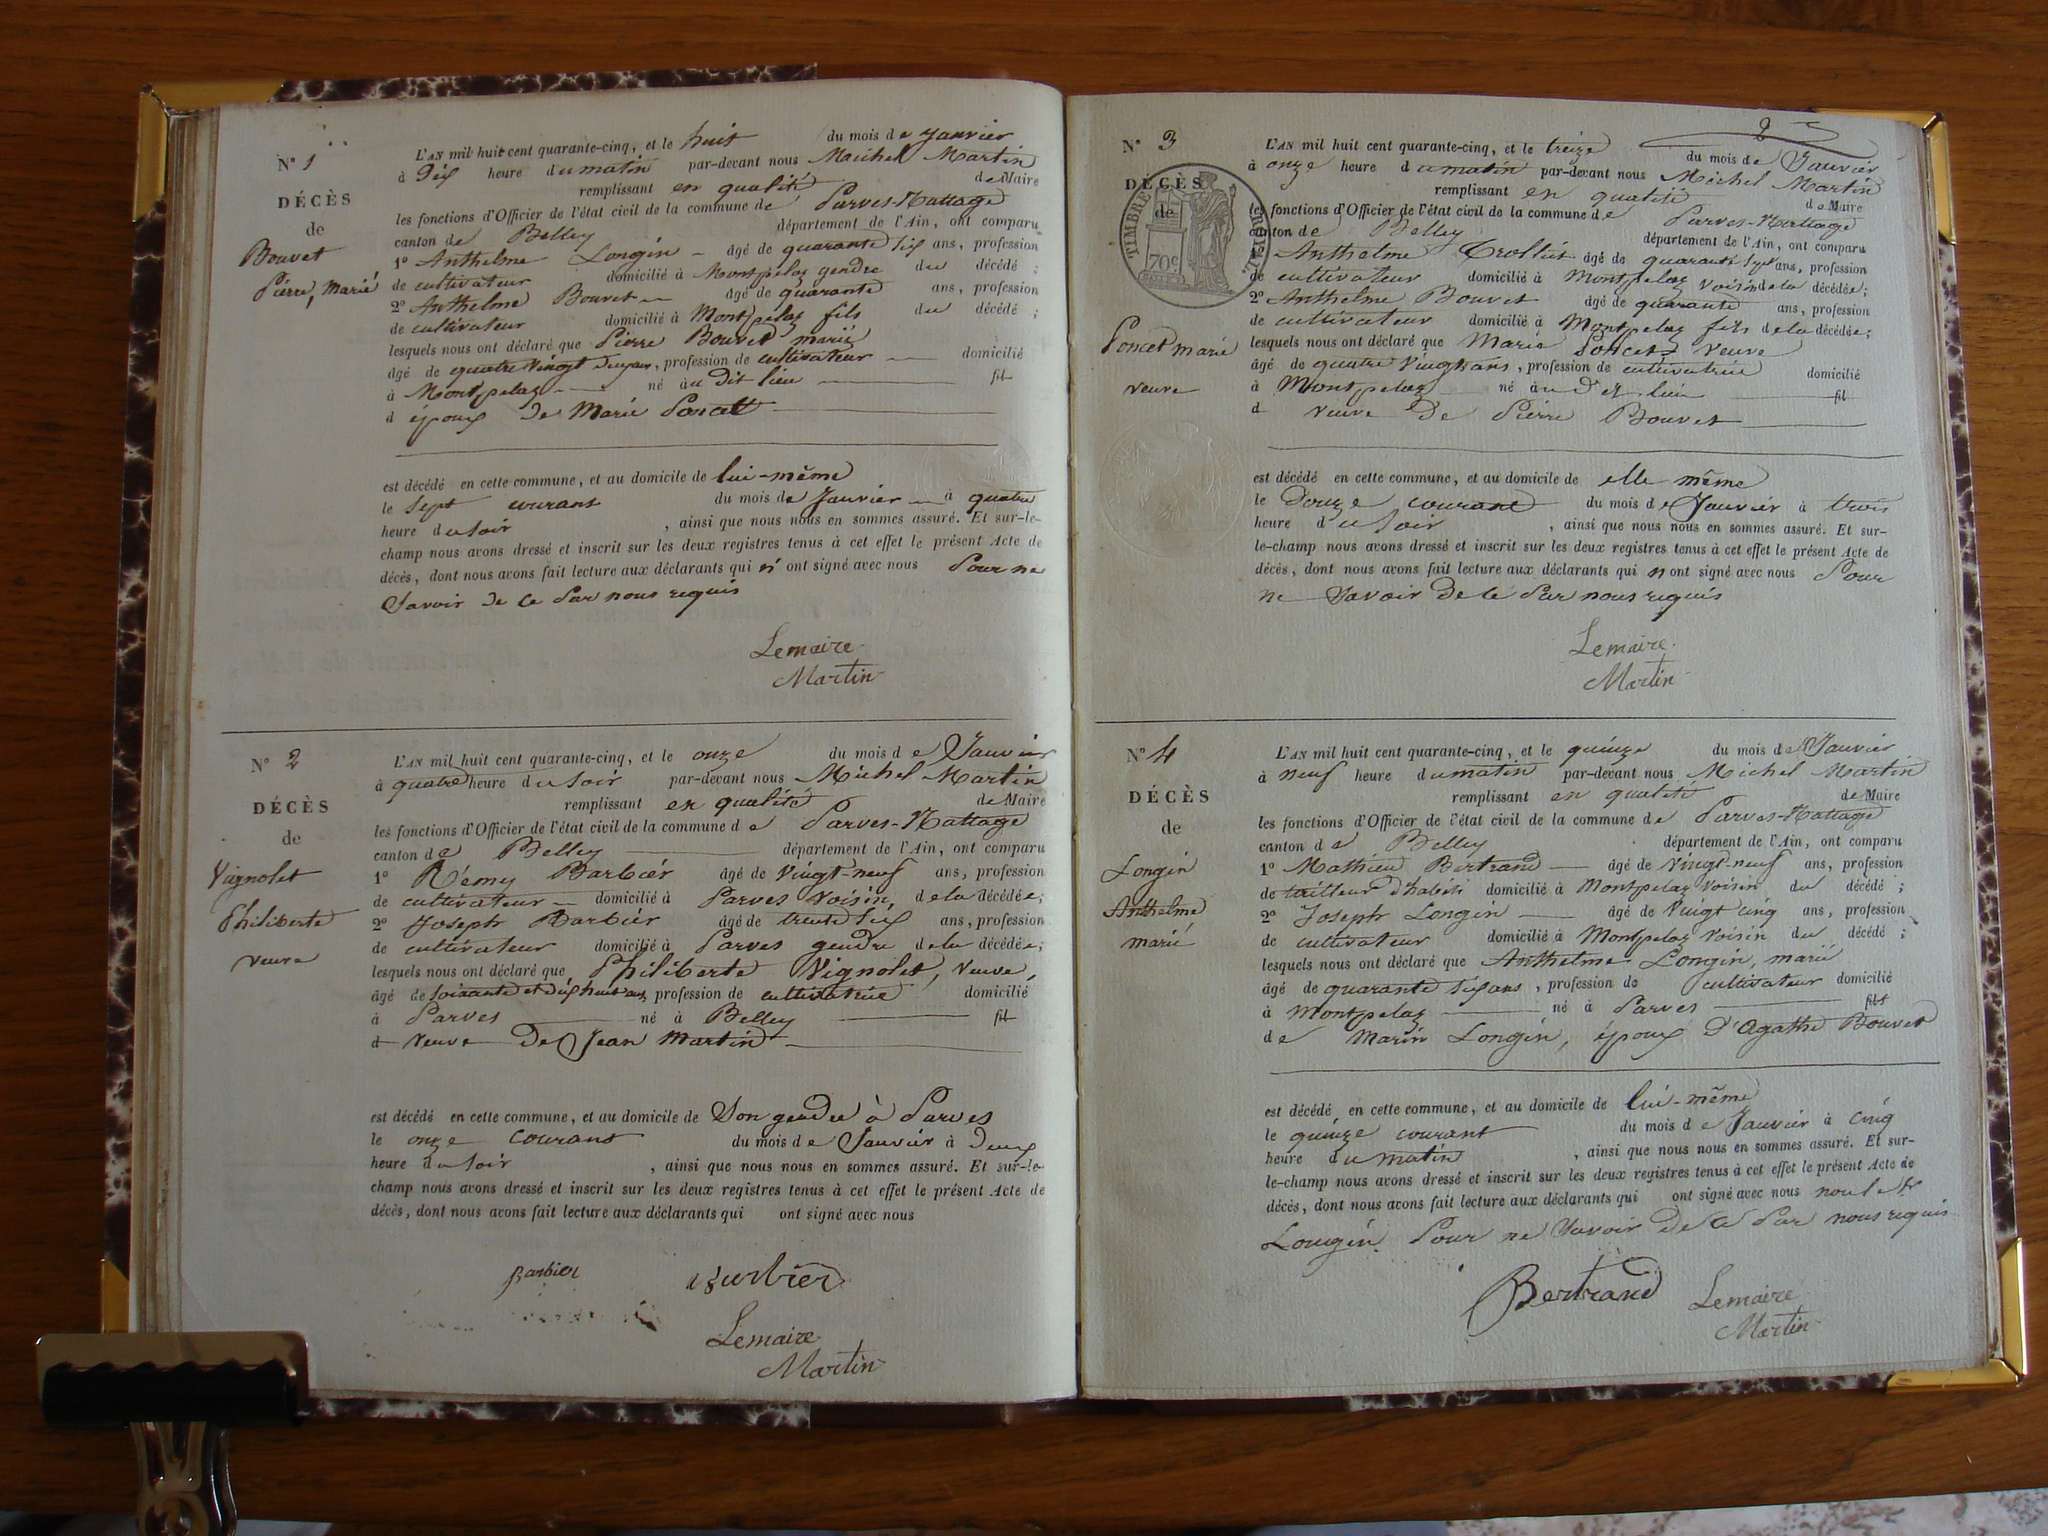 N° 1
DÉCÈS
de
Bouvet
Pierre, Marié
L'AN mil huit cent quarante-cinq, et le huit du mois de Janvier
à Dix heure du matin par-devant nous Maichel Martin
remplissant en qualité de Maire
les fonctions d'Officier de l'état civil de la commune de Parves-Nattage
canton de Belley département de l'Ain, ont comparu
1° Anthelme Longin âgé de quarante six ans, profession
de cultivateur domicilié à Montpelaz gendre du décédé ;
2° Anthelme Bouvet âgé de quarante ans, profession
de cultivateur domicilié à Montpelaz fils du décédé ;
lesquels nous ont déclaré que Pierre Bouvet marié
âgé de quatre vingt deuxans, profession de cultivateur domicilié
à Montpelaz né àu Dit lieu fil
d époux de Marie Poncett
est décédé en cette commune, et au domicile de lui-même
le Sept courant du mois de Janvier à quatre
heure du soir, ainsi que nous nous en sommes assuré. Et sur-le-
champ nous avons dressé et inscrit sur les deux registres tenus à cet effet le présent Acte de
décès, dont nous avons fait lecture aux déclarants qui n' ont signé avec nous Pour ne
Savoir de ce Par nous requis
Lemaire
Martin
N° 2
DÉCÈS
de
Vignolet
Philiberte
veuve
L'AN mil huit cent quarante-cinq, et le onze du mois de Janvier
à quatre heure du soir par-devant nous Michel Martin
remplissant en qualité de Maire
les fonctions d'Officier de l'état civil de la commune de Parves-Nattage
canton de Belley département de l'Ain, ont comparu
1° Rémy Barbier âgé de Vingt-neuf ans, profession
de cultivateur domicilié à Parves Voisin, dela décédée;
2° Joseph Barbier âgé de trente six ans, profession
de cultivateur domicilié à Parves gendre dela décédée;
lesquels nous ont déclaré que Philiberte Vignolet, Veuve,
âgé de soixante et dix huit ans, profession de cultivatrice domicilié
à Parves né à Belley fil
d Veuve De Jean Martin
est décédé en cette commune, et au domicile de Son gendre à Parves
le onze courant du mois de Janvier à Deux
heure du soir, ainsi que nous nous en sommes assuré. Et sur-le-
champ nous avons dressé et inscrit sur les deux registres tenus à cet effet le présent Acte de
décès, dont nous avons fait lecture aux déclarants qui ont signé avec nous
Barbier Barbier
Lemaire
Martin
2
N° 3
DÉCÈS
de
TIMBRE IMPÉRIAL
70c
Poncet marie
veuve
L'AN mil huit cent quarante-cinq, et le treize du mois de Janvier
à onze heure du matin par-devant nous Michel Martin
remplissant en qualité de Maire
les fonctions d'Officier de l'état civil de la commune de Parves-Nattage
canton de Belley département de l'Ain, ont comparu
Anthelme Trolliet âgé de quarante Sept ans, profession
de cultivateur domicilié à Montpelaz voisin de la décédée;
2° Anthelme Bouvet âgé de quarante ans, profession
de cultivateur domicilié à Montpelaz fils de la décédée;
lesquels nous ont déclaré que Marie Poncet Veuve
âgé de quatre Vingts ans, profession de cultivatrice domicilié
à Montpelaz né àu Det lieu fil
d veuve De Pierre Bouvet
est décédé en cette commune, et au domicile de elle même
le Douze courant du mois de Janvier à trois
heure du Soir, ainsi que nous nous en sommes assuré. Et sur-
le-champ nous avons dressé et inscrit sur les deux registres tenus à cet effet le présent Acte de
décès, dont nous avons fait lecture aux déclarants qui n ont signé avec nous Pour
ne Savoir de ce Par nous requis
Lemaire
Martin
N° 4
DÉCÈS
de
Longin
Anthelme
marié
L'AN mil huit cent quarante-cinq, et le quinze du mois de Janvier
à neuf heure du matin par-devant nous Michel Martin
remplissant en qualité de Maire
les fonctions d'Officier de l'état civil de la commune de Parves-Nattage
canton de Belley département de l'Ain, ont comparu
1° Mathieu Bertrand âgé de Vingt-neuf ans, profession
de tailleur d'habits domicilié à Montpelaz Voisin du décédé ;
2° Joseph Longin âgé de Vingt cinq ans, profession
de cultivateur domicilié à Montpelaz Voisin du décédé ;
lesquels nous ont déclaré que Anthelme Longin, marié
âgé de quarante six ans, profession de cultivateur domicilié
à Montpelaz né à Parves fils
de Marin Longin, époux D'Agathe Bouvet
est décédé en cette commune, et au domicile de lui-même
le quinze courant du mois de Janvier à cinq
heure du matin, ainsi que nous nous en sommes assuré. Et sur-
le-champ nous avons dressé et inscrit sur les deux registres tenus à cet effet le présent Acte de
décès, dont nous avons fait lecture aux déclarants qui ont signé avec nous
Longin Pour ne Savoir de ce Par nous requis
Bertrand Lemaire
Martin